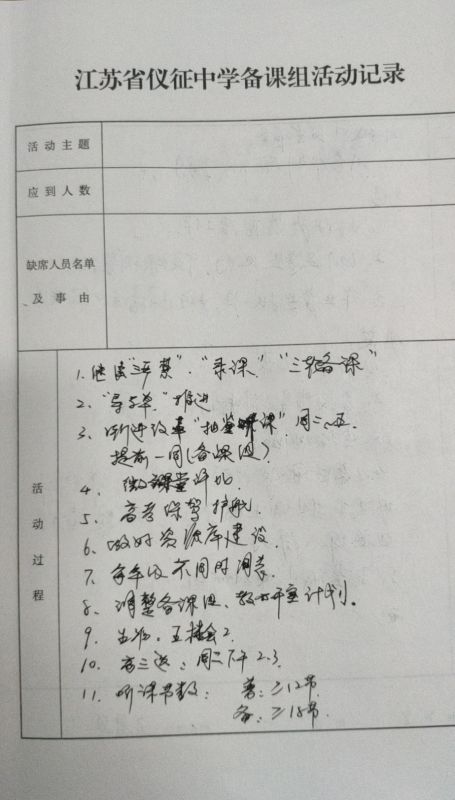 江苏省仪征中学备课组活动记录
活动主题
应到人数
缺席人员名单
及事由
活动过程
1. 继续"三研禁"."录课""三轮备课"
2. "导学单"推进
3. 听评改革"抽签课" 周二~五.
提前一周(备课组)
4. 微课堂评比
5. 高考保驾护航.
6. 做好资源库建设.
7. 每年级不同时间
8. 调整备课组、教研室计划。
9.
10. 高三 : 周二下午2.3.
11. 听课节数: ≥12节.
≥15节.